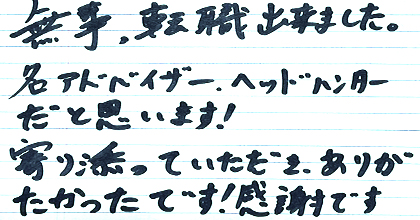 無事、転職出来ました。
名アドバイザー、ヘッドハンター
だと思います!
寄り添っていただき、ありが
たかったです!感謝です